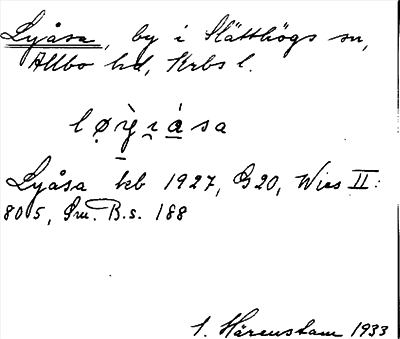 Lyåsa, by i Slätthögs sn,
Allbo hd, Krbs l.
Lyåsa kb 1927, G20, Wies II:
805, Gm. B.s. 188
1. Härenstam 1933